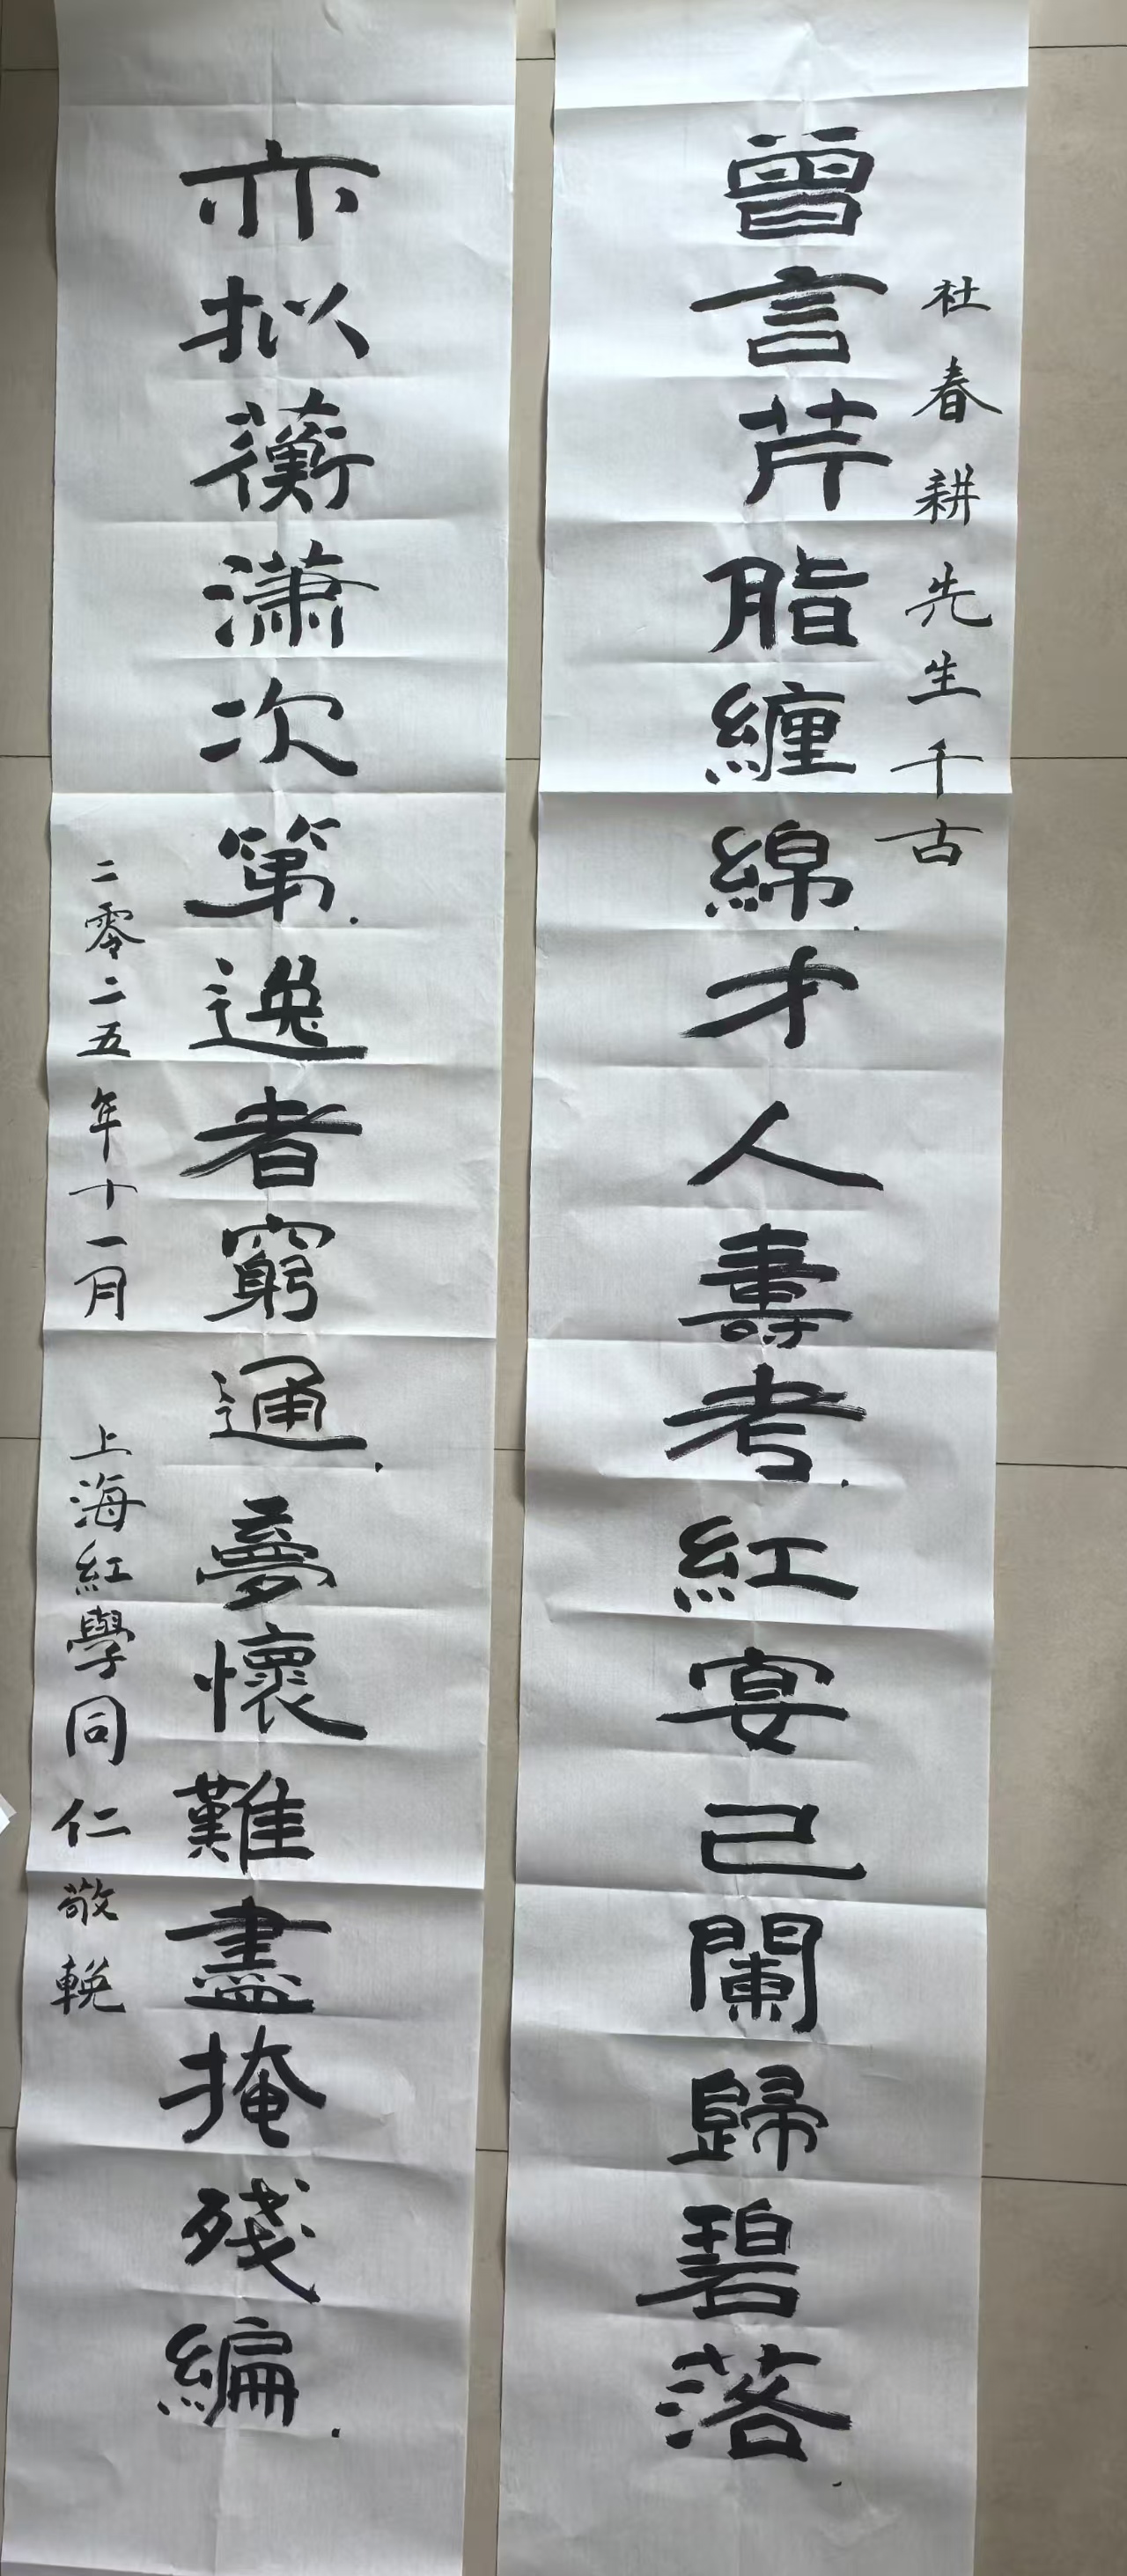 社春耕先生千古
曾言芹脂纏綿.才人壽考.紅宴已闌歸碧落.
亦拟蘅潇次第.逸者窮通.夢懷難盡掩殘編.
二零二五年十一月 上海紅學同仁敬輓